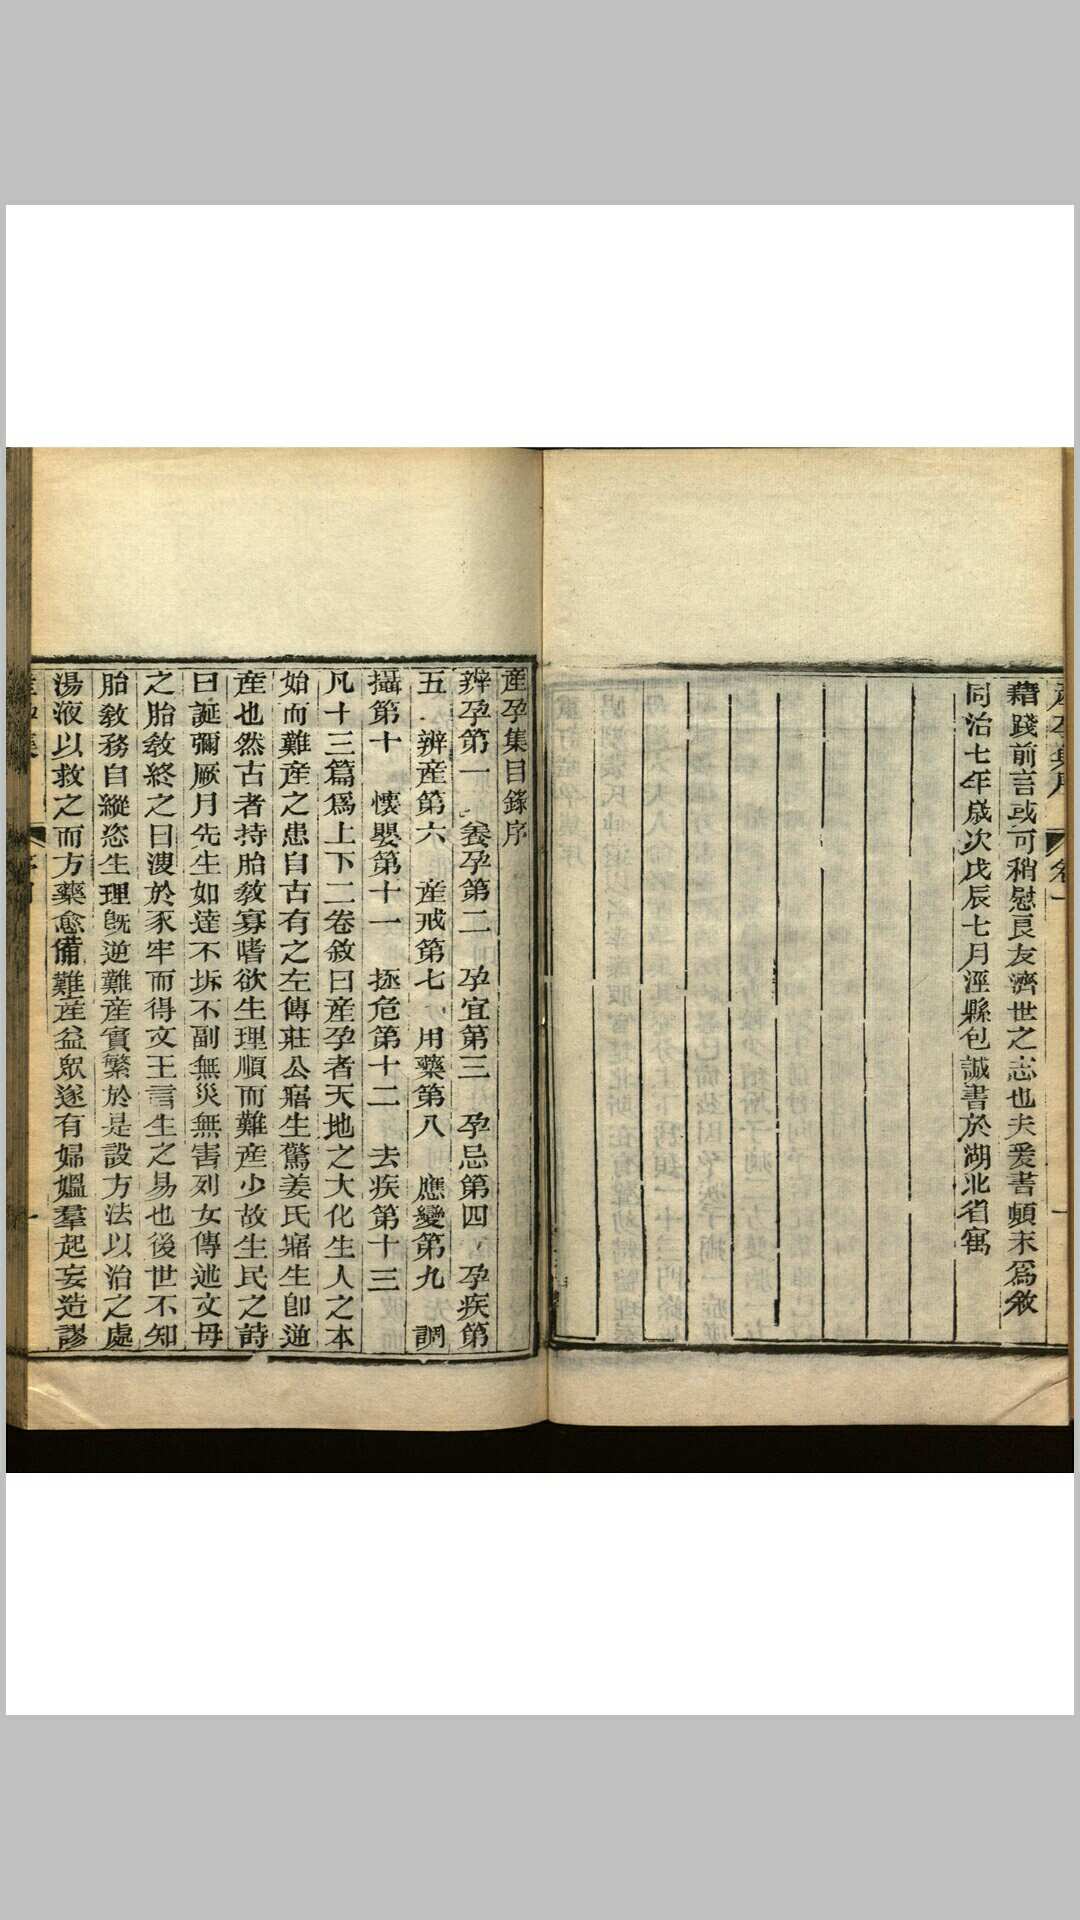 藉踐前言或可稍慰良友濟世之志也夫爰書顛末爲敘
同治七年歲次戊辰七月涇縣包誠書於湖北省寓
產孕集目錄序
辨孕第一 養孕第二 孕宜第三 孕忌第四 孕疾第
五 辨產第六 產戒第七 用藥第八 應變第九 調
攝第十 懷嬰第十一 拯危第十二 去疾第十三
凡十三篇爲上下二卷敘曰產孕者天地之大化生人之本
始而難產之患自古有之左傳莊公寤生驚姜氏寤生卽逆
產也然古者持胎敎寡嗜欲生理順而難產少故生民之詩
曰誕彌厥月先生如達不坼不副無災無害列女傳述文母
之胎敎終之曰溲於豕牢而得文王言生之易也後世不知
胎敎務自縱恣生理旣逆難產實繁於是設方法以治之處
湯液以救之而方藥愈備難產益眾遂有婦媼羣起妄造謬